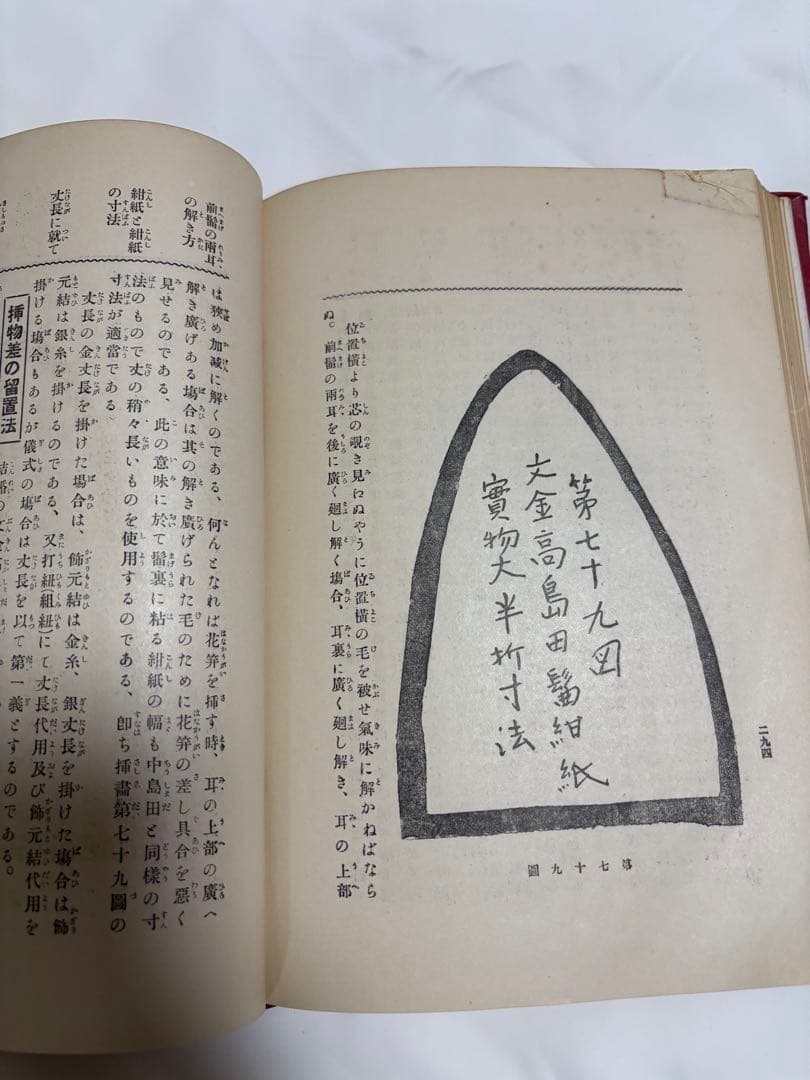 二九四
第七十九図
文金高島田髷紺紙
實物大半折寸法
第七十九圖
位置横より芯の覗き見にぬやうに位置横の毛を被せ氣味に解かねばなら
ぬ。前髷の兩耳を後に廣く廻し解く塲合、耳裏に廣く廻し解き、耳の上部
前髷の兩耳
の解き方
紺紙と紺紙
の寸法
丈長に就て
は狹め加減に解くのである、何んとなれば花笄を挿す時、耳の上部の廣へ
解き廣げある塲合は其の解き廣げられた毛のために花笄の差し具合を惡く
見せるのである、此の意味に於て髷裏に粘る紺紙の幅も中島田と同樣の寸
法のもので丈の稍々長いものを使用するのである、卽ち挿畵第七十九圖の
寸法が適當である
丈長の金丈長を掛けた塲合は、飾元結は金糸、銀丈長を掛けた塲合は飾
元結は銀糸を掛けるのである、又打紐(組紐)にて丈長代用及び飾元結代用を
掛ける塲合もあるが儀式の塲合は丈長を以て第一義とするのである。
挿物差の留置法